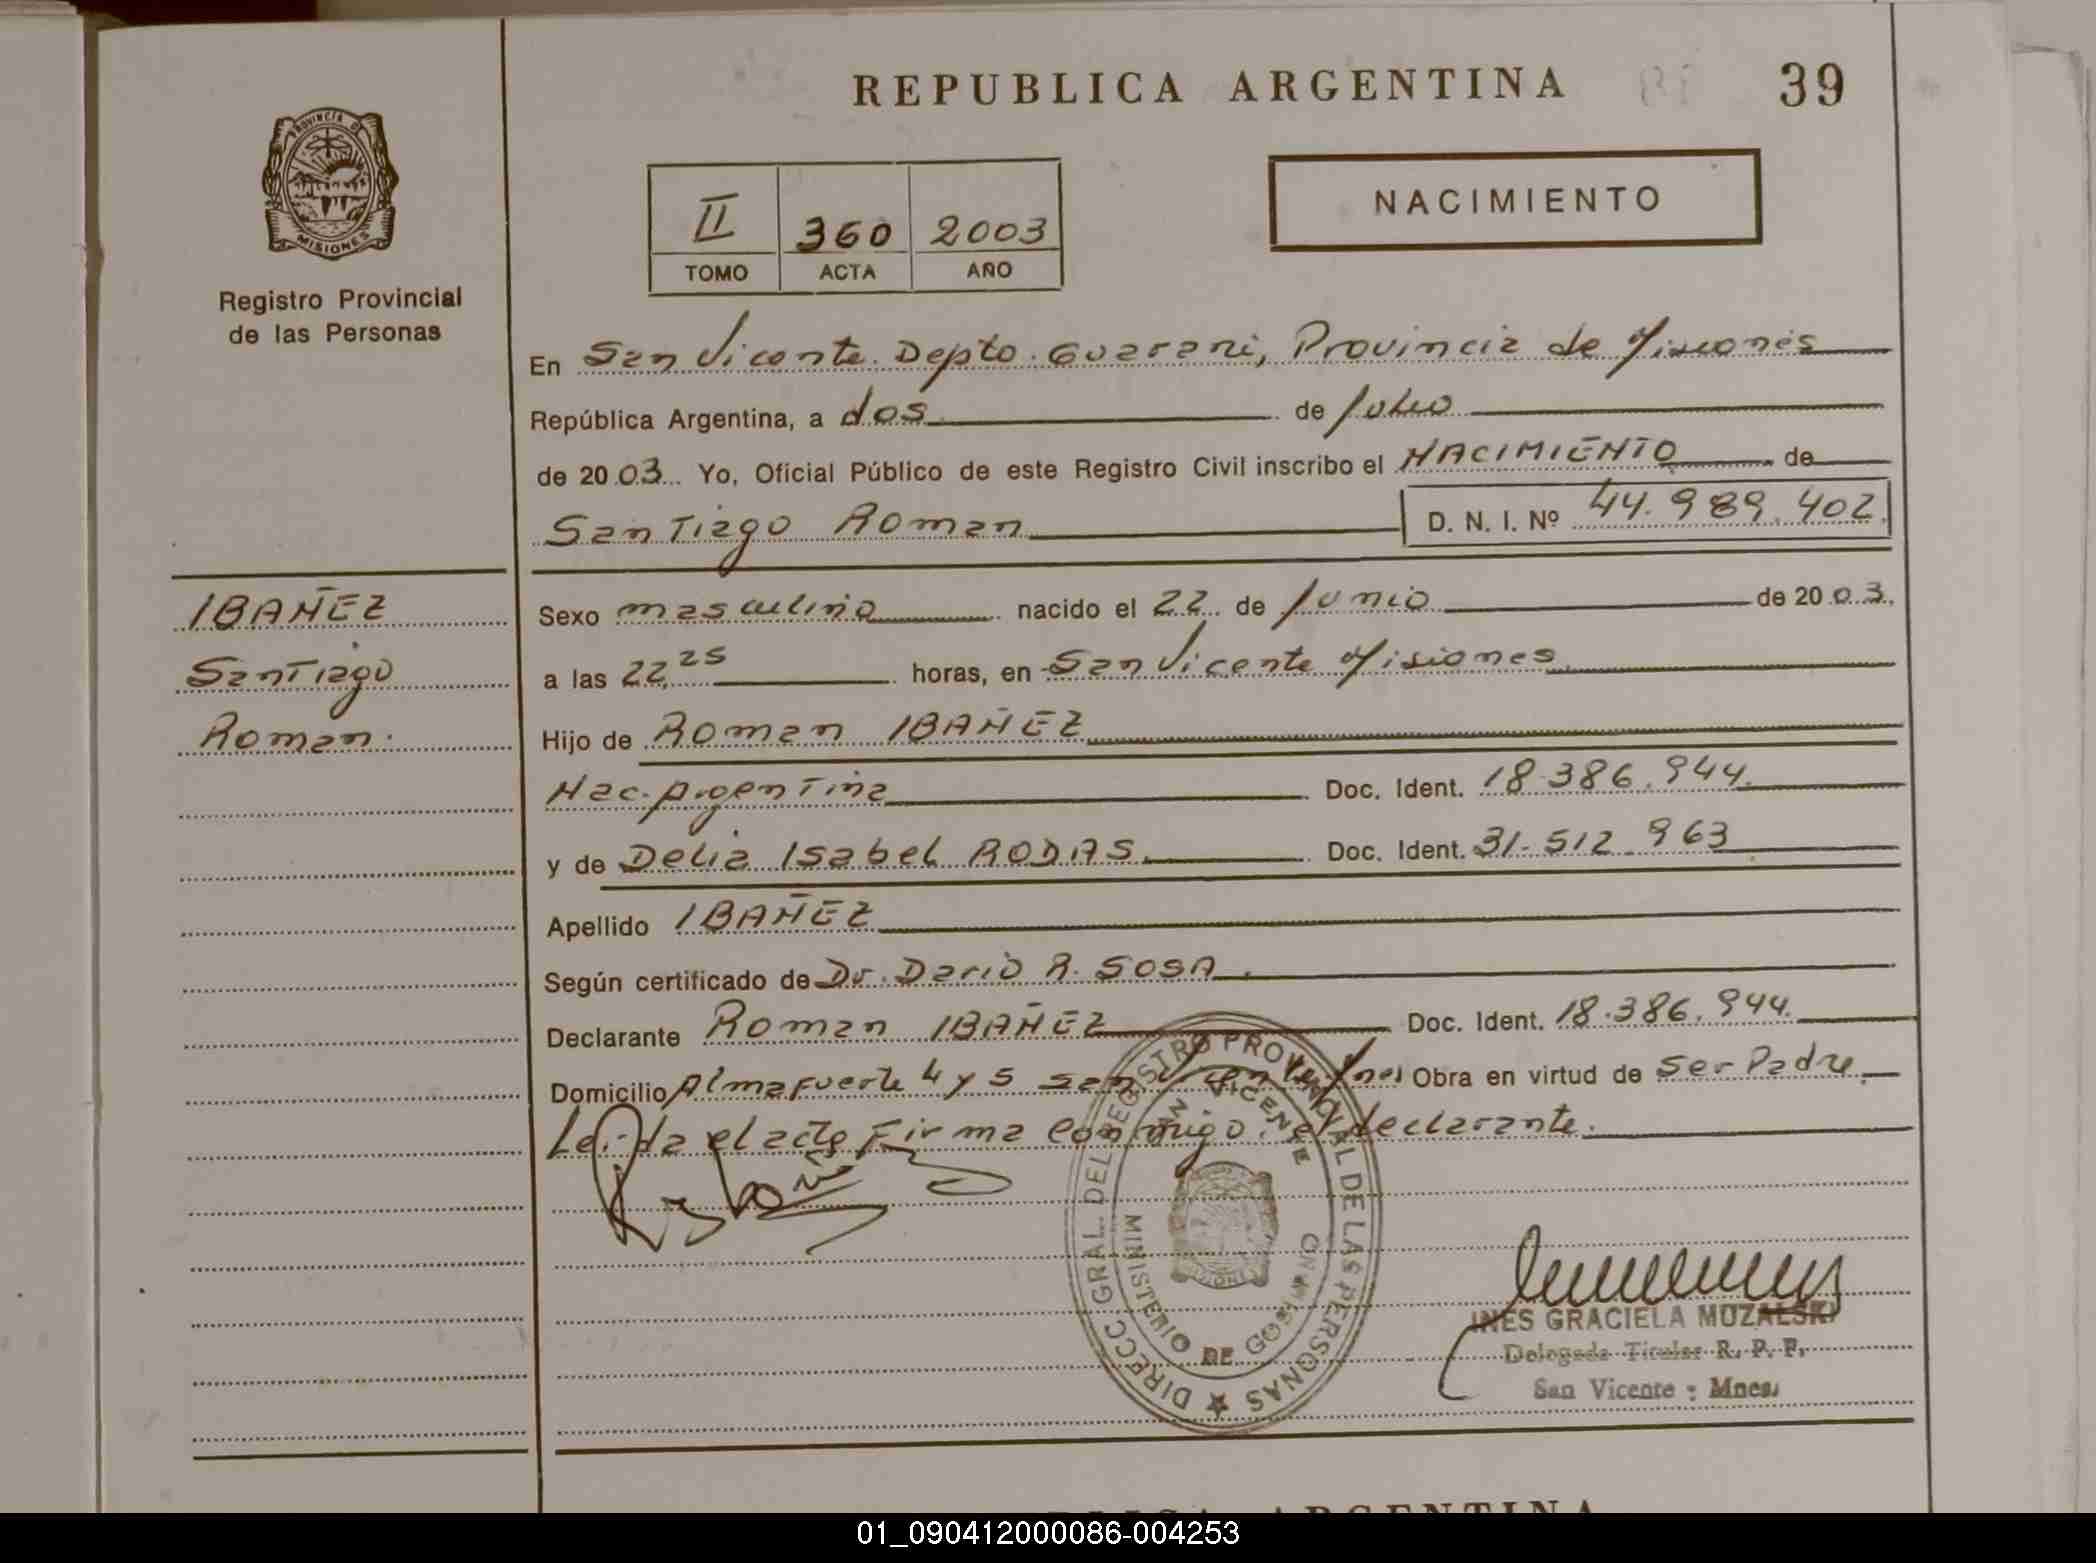 REPUBLICA ARGENTINA 39
PROVINCIA DE
MISIONES
Registro Provincial
de las Personas
NACIMIENTO
II 360 2003
TOMO ACTA AÑO
En San Vicente. Depto. Guarani, Provincia de Misiones
República Argentina, a dos de Julio
de 2003 Yo, Oficial Público de este Registro Civil inscribo el NACIMIENTO de
Santiago Roman D. N. I. Nº 44.989.402
IBAÑEZ
Santiago
Roman.
Sexo masculino nacido el 22 de Junio de 2003.
a las 22,25 horas, en San Vicente Misiones
Hijo de Roman IBAÑEZ
Nac. Argentina Doc. Ident. 18.386.944.
y de Delia Isabel RODAS Doc. Ident. 31.512.963
Apellido IBAÑEZ
Según certificado de Dr. Dario R. SOSA.
Declarante Roman IBAÑEZ Doc. Ident. 18.386.944.
Domicilio Almafuerte 4 y 5 San Vicente Mnes Obra en virtud de ser Padre.
Leida el acta Firma conmigo el declarante.
DIRECC GRAL. DEL REGISTRO PROVINCIAL DE LAS PERSONAS
SAN VICENTE
MINISTERIO DE GOBIERNO
INES GRACIELA MUZALSKI
Delegada Titular R. P. P.
San Vicente - Mnes.
REPUBLICA ARGENTINA
01_090412000086-004253